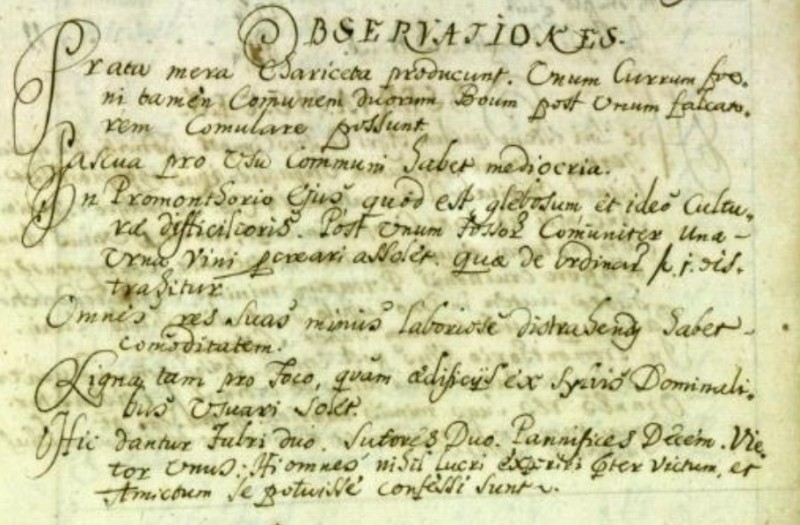 OBSERVATIONES.
Prata mera Chariceta producunt. Unum Currum foe.
ni tamen Comunem duorum Boum post Unum falcato.
rem Comulare possunt
Pascua pro Usu Communi habet mediocria.
In Promonthorio Ejus quod est glebosum et ideo Cultu,
ræ difficilioris. Post Unum fossor Comuniter Una-
Urna Vini pcreari assolet. quæ de ordinar f. 1. dis.
trahitur
Omnes res suas minus laboriose distrahendj habet
comoditatem.
Ligna tam pro Foco, quam ædificijs ex sylvis Dominali.
bus Usuari solet.
Hic dantur Fabri duo. Sutores Duo. Pannifices Decem. Vie,
tor Unus. Hi omnes nihil lucri præter Victum, et
Amictum se potuisse confessi sunt.